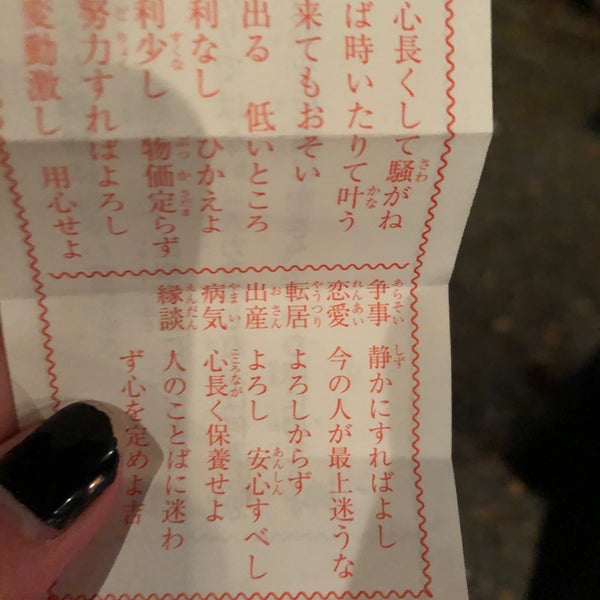 心長くして騒がね
ば時いたりて叶う
来てもおそい
出る 低いところ
利なし ひかえよ
利少し 物価定らず
努力すればよろし
変動激し 用心せよ
争事 静かにすればよし
恋愛 今の人が最上迷うな
転居 よろしからず
出産 よろし 安心すべし
病気 心長く保養せよ
縁談 人のことばに迷わ
ず心を定めよ吉